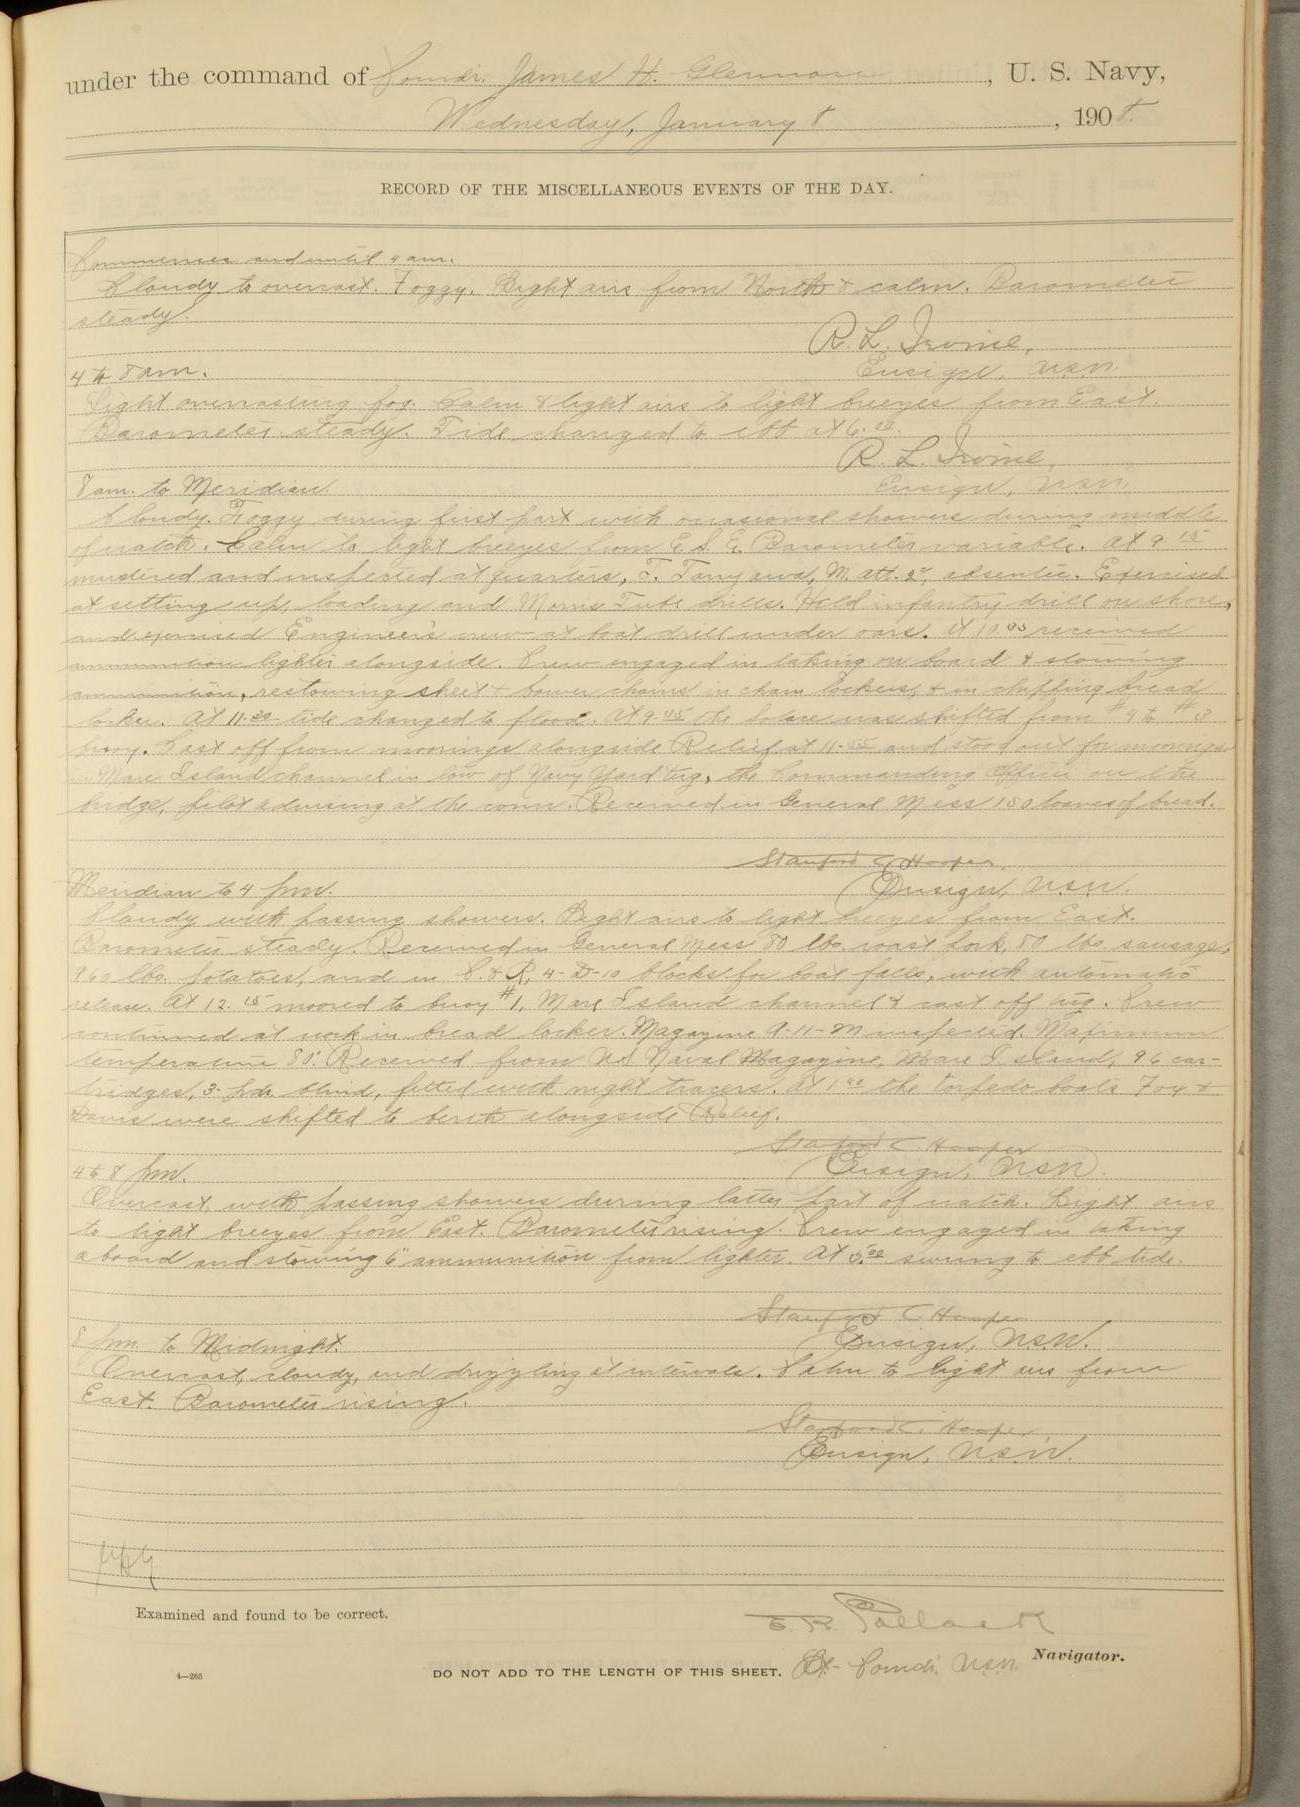 under the command of Comdr. James H. Glennon, U. S. Navy,
Wednesday, January 8, 1908.
RECORD OF THE MISCELLANEOUS EVENTS OF THE DAY.
Commences and until 4 am.
Cloudy to overcast. Foggy. Light airs from North & calm. Barometer
steady.
R. L. Irvine,
Ensign, U.S.N.
4 to 8 am.
Light overcasting fog. Calm & light airs to light breezes from East.
Barometer steady. Tide changed to ebb at 6.00.
R. L. Irvine,
Ensign, U.S.N.
8 am. to Meridian.
Cloudy. Foggy during first part with occasional showers during middle
of watch. Calm to light breezes from E.S.E. Barometer variable. At 9.15
mustered and inspected at quarters, M. Att. absentee. Exercised
at setting up, loading and Morris Tube drills. Held infantry drill on shore,
and exercised Engineer's crew at boat drill under oars. At 10.00 received
ammunition lighter alongside. Crew engaged in taking on board & stowing
ammunition, restowing sheet & bower chains in chain lockers, & in chipping bread
locker. At 11.30 tide changed to flood. At 9.05 the was shifted from #4 to #3
buoy. Cast off from moorings alongside Relief at 11-55 and stood out for moorings
in Mare Island channel in tow of Navy Yard tug, the Commanding Officer on the
bridge, pilot advising at the conn. Received in General Mess 150 loaves of bread.
Stanford C Hooper,
Ensign, U.S.N.
Meridian to 4 pm.
Cloudy with passing showers. Light airs to light breezes from East.
Barometer steady. Received in General Mess 80 lbs. roast pork, 80 lbs. sausage,
960 lbs. potatoes, and in C. & R., 4-D-10 blocks for boat falls, with automatic
release. At 12.15 moored to buoy #1, Mare Island channel & cast off tug. Crew
continued at work in bread locker. Magazine A-11-M inspected. Maximum
temperature 80°. Received from U.S. Naval Magazine, Mare Island, 96 car-
tridges, 3-pdr. blind, fitted with night tracers. At 1.40 the torpedo boats Fox &
Davis were shifted to berth alongside Relief.
Stanford C. Hooper
Ensign, U.S.N.
4 to 8 pm.
Overcast with passing showers during latter part of watch. Light airs
to light breezes from East. Barometer rising. Crew engaged in taking
aboard and stowing 6" ammunition from lighter. At 5.00 swung to ebb tide.
Stanford C Hooper
Ensign, U.S.N.
8 pm. to Midnight.
Overcast, cloudy, and drizzling at intervals. Calm to light airs from
East. Barometer rising.
Stanford C. Hooper,
Ensign, U.S.N.
Examined and found to be correct.
E. R. Pollock
Lt-Comdr. U.S.N. Navigator.
4—265
DO NOT ADD TO THE LENGTH OF THIS SHEET.